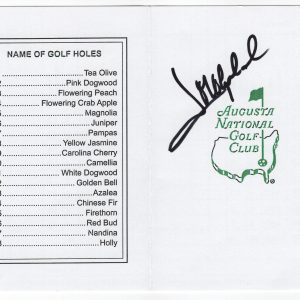 NAME OF GOLF HOLES
Tea Olive
Pink Dogwood
Flowering Peach
Flowering Crab Apple
Magnolia
Juniper
Pampas
Yellow Jasmine
Carolina Cherry
Camellia
White Dogwood
Golden Bell
Azalea
Chinese Fir
Firethorn
Red Bud
Nandina
Holly
AUGUSTA
NATIONAL
GOLF
CLUB
®